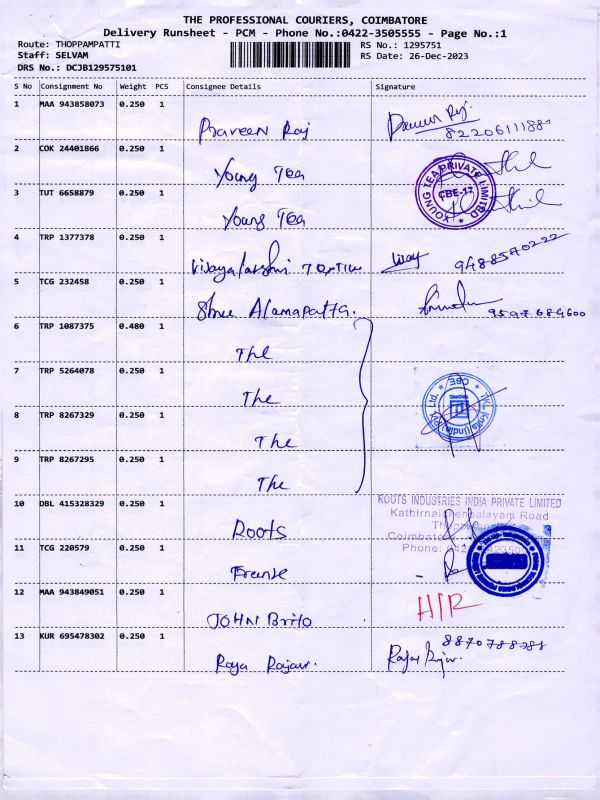 THE PROFESSIONAL COURIERS, COIMBATORE
Delivery Runsheet - PCM - Phone No.:0422-3505555 - Page No.:1
Route: THOPPAMPATTI RS No.: 1295751
Staff: SELVAM RS Date: 26-Dec-2023
DRS No.: DCJB129575101
S No Consignment No Weight PCS Consignee Details Signature
1 MAA 943858073 0.250 1 Praveen Raj
2 COK 24401866 0.250 1 Young Tea
YOUNG TEA PRIVATE LIMITED
CBE-17
3 TUT 6658879 0.250 1 Young Tea
4 TRP 1377378 0.250 1 Vijay 9488570222
5 TCG 232458 0.250 1 Shree 9597684600
6 TRP 1087375 0.480 1 The
7 TRP 5264078 0.250 1 The
CBE
8 TRP 8267329 0.250 1 The
9 TRP 8267295 0.250 1 The
10 DBL 415328329 0.250 1 Roots
ROOTS INDUSTRIES INDIA PRIVATE LIMITED
Road
Coimbatore
Phone:
11 TCG 220579 0.250 1
12 MAA 943849051 0.250 1 JOHN Brito H/R
13 KUR 695478302 0.250 1 Raja